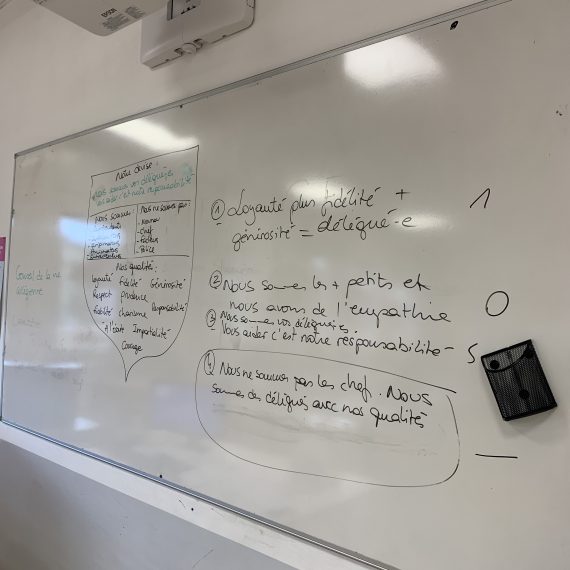 EPSON
Notre devise :
Nous sommes vos délégué.es
vous aider c'est notre responsabilité
Nous sommes :
Nous ne sommes pas :
- chef
- facteur
- Police
Nos qualité :
Loyauté fidélité Générosité
Respect prudence
fiabilité charisme Responsabilité
A l'écoute Impartialité
Courage
Conseil de la vie
collégienne
① Loyauté plus fidélité +
générosité = délégué-e
1
② Nous sommes les + petits et
nous avons de l'empathie
0
③ Nous sommes vos délégué.es.
Vous aider c'est notre responsabilité
5
④ Nous ne sommes pas les chef. Nous
sommes des délégués avec nos qualités
—